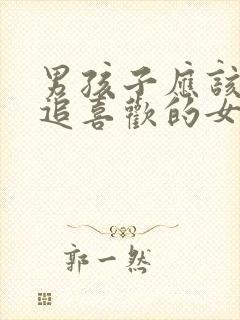 男孩子應該
追喜歡的女
郭一然